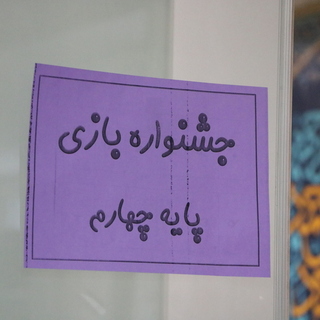 جشنواره بازی
پایه چهارم